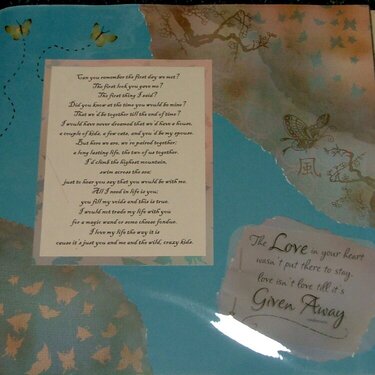 Can you remember the first day we met?
The first look you gave me?
The first thing I said?
Did you know at the time you would be mine?
That we'd be together till the end of time?
I would have never dreamed that we'd have a house,
a couple of kids, a few cats, and you'd be my spouse.
But here we are, we're paired together;
a long lasting life, the two of us together.
I'd climb the highest mountain,
swim across the sea;
just to hear you say that you would be with me.
All I need in life is you;
you fill my voids and this is true.
I would not trade my life with you
for a magic wand or some cheese fondue.
I love my life the way it is
cause it's just you and me and the wild, crazy kids.
風
The Love in your heart
wasn't put there to stay.
love isn't love till it's
Given Away